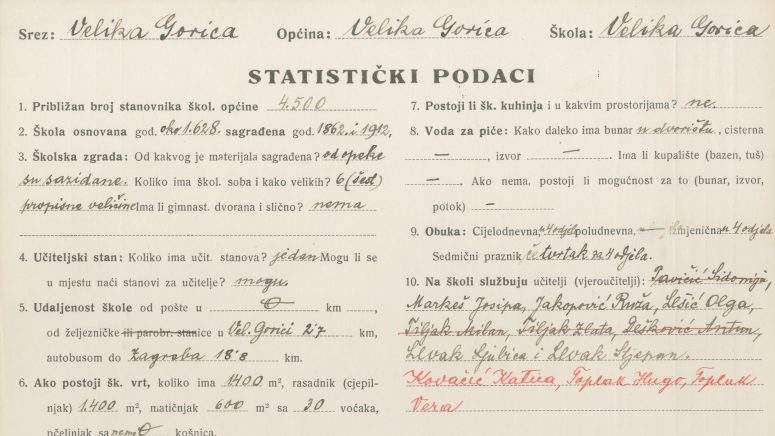 Srez: Velika Gorica Općina: Velika Gorica Škola: Velika Gorica
STATISTIČKI PODACI
1. Približan broj stanovnika škol. općine 4.500
2. Škola osnovana god. oko 1.628. sagrađena god. 1862. i 1912,
3. Školska zgrada: Od kakvog je materijala sagrađena? od opeke
su sazidane. Koliko ima škol. soba i kako velikih? 6 (šest)
propisne veličine Ima li gimnast. dvorana i slično? nema
4. Učiteljski stan: Koliko ima učit. stanova? jedan Mogu li se
u mjestu naći stanovi za učitelje? mogu.
5. Udaljenost škole od pošte u 0 km ,
od željezničke ili parobr. stanice u Vel. Gorici 2'7 km,
autobusom do Zagreba 18'8 km.
6. Ako postoji šk. vrt, koliko ima 1400 m², rasadnik (cjepil-
njak) 1.400 m², matičnjak 600 m² sa 30 voćaka,
pčelinjak sa nema 0 košnica.
7. Postoji li šk. kuhinja i u kakvim prostorijama? ne.
8. Voda za piće: Kako daleko ima bunar u dvorištu, cisterna
—, izvor —. Ima li kupalište (bazen, tuš)
—. Ako nema, postoji li mogućnost za to (bunar, izvor,
potok) —
9. Obuka: Cijelodnevna, 4 odjela poludnevna, smjenična u 4 odjela
Sedmični praznik četvrtak za 4 odjela.
10. Na školi službuju učitelji (vjeroučitelji): Pavičić Sidonija,
Markeš Josipa, Jakopović Ruža, Lešić Olga,
Tiljak Milan, Tiljak Zlata, Dešković Antun,
Levak Ljubica i Levak Stjepan.
Kovačić Katica, Toplak Hugo, Toplak
Vera